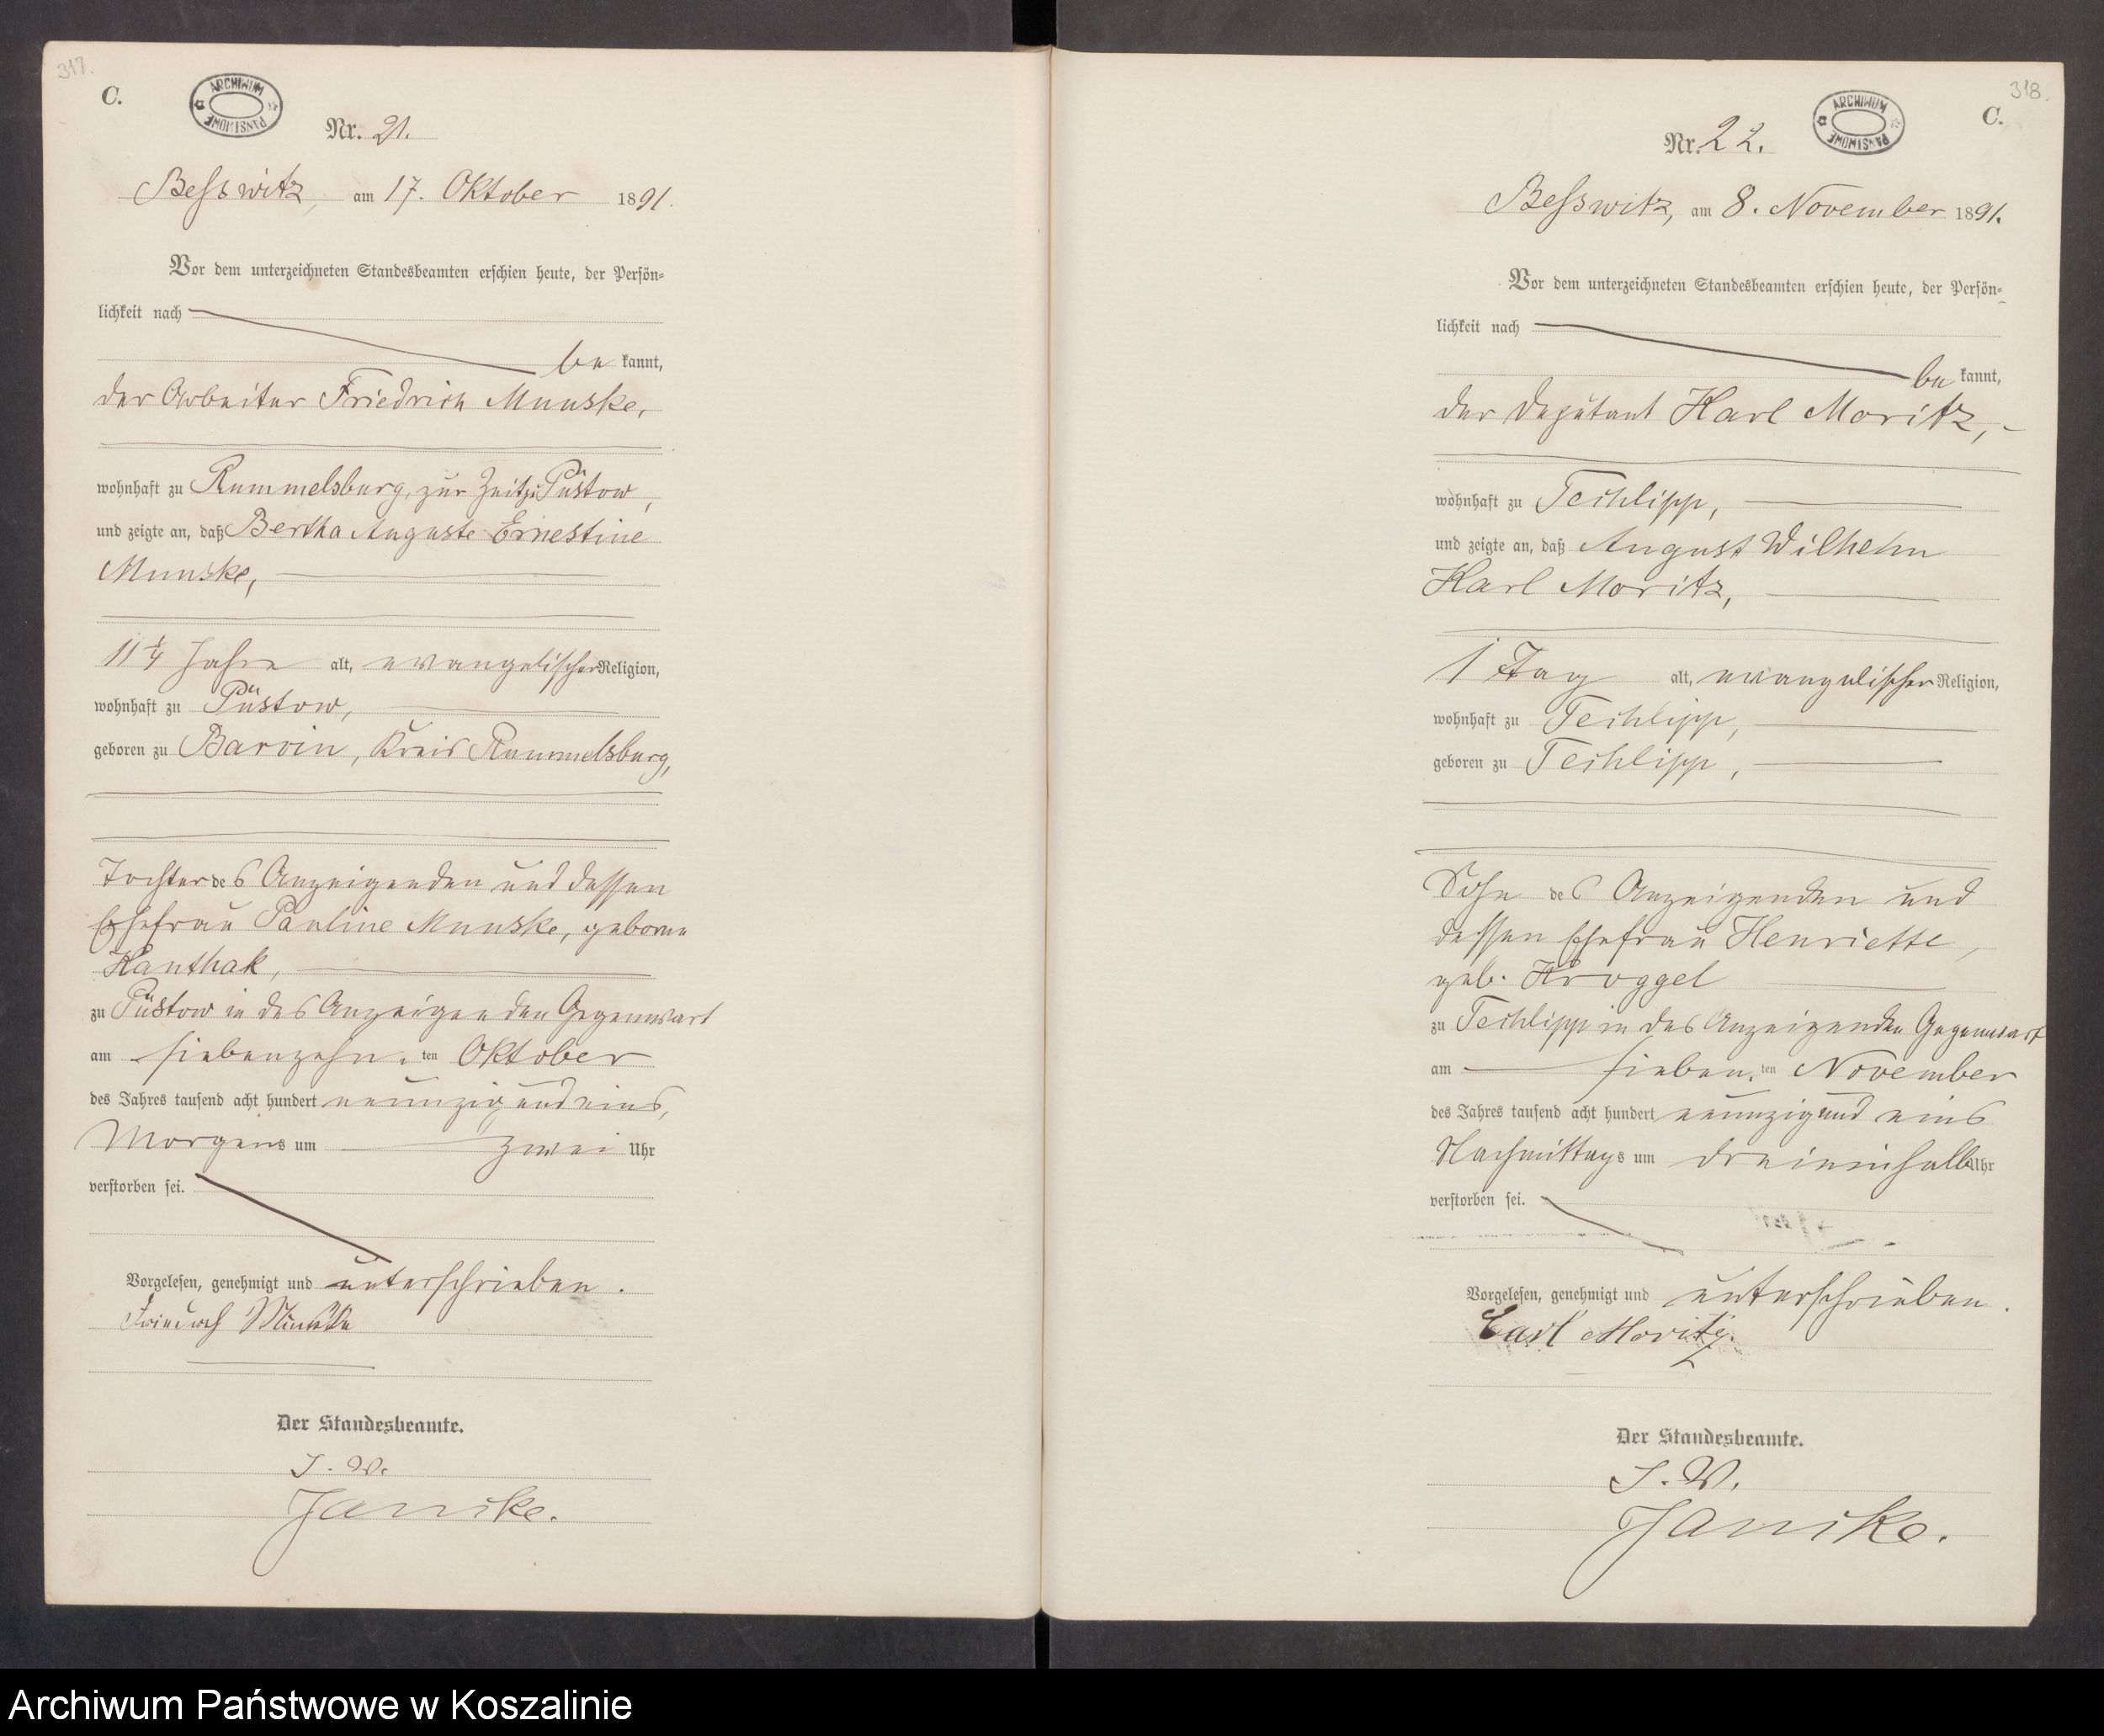 317.
C.
ARCHIWUM PAŃSTWOWE
Nr. 21.
Beßswitz, am 17. Oktober 1891.
Vor dem unterzeichneten Standesbeamten erschien heute, der Persön-
lichkeit nach
be kannt,
der Arbeiter Friedrich Munske,
wohnhaft zu Rummelsburg, zur Zeit zu Püstow,
und zeigte an, daß Bertha Auguste Ernestine
Munske,
11 1/4 Jahre alt, evangelischer Religion,
wohnhaft zu Püstow,
geboren zu Barvin, Kreis Rummelsburg,
Tochter des Anzeigenden und dessen
Ehefrau Pauline Munske, geborne
Kanthak,
zu Püstow in des Anzeigenden Gegenwart
am siebenzehn. ten Oktober
des Jahres tausend acht hundert neunzig und eins,
Morgens um zwei Uhr
verstorben sei.
Vorgelesen, genehmigt und unterschrieben.
Friedrich Munske
Der Standesbeamte.
J. V.
Janike.
318.
C.
ARCHIWUM PAŃSTWOWE
Nr. 22.
Beßswitz, am 8. November 1891.
Vor dem unterzeichneten Standesbeamten erschien heute, der Persön-
lichkeit nach
be kannt,
der Deputant Karl Moritz,
wohnhaft zu Techlipp,
und zeigte an, daß August Wilhelm
Karl Moritz,
1 Tag alt, evangelischer Religion,
wohnhaft zu Techlipp,
geboren zu Techlipp,
Sohn des Anzeigenden und
dessen Ehefrau Henriette,
geb. Kroggel
zu Techlipp in des Anzeigenden Gegenwart
am sieben. ten November
des Jahres tausend acht hundert neunzig und eins
Nachmittags um dreieinhalb Uhr
verstorben sei.
Vorgelesen, genehmigt und unterschrieben.
Carl Moritz.
Der Standesbeamte.
J. V.
Janike.
Archiwum Państwowe w Koszalinie